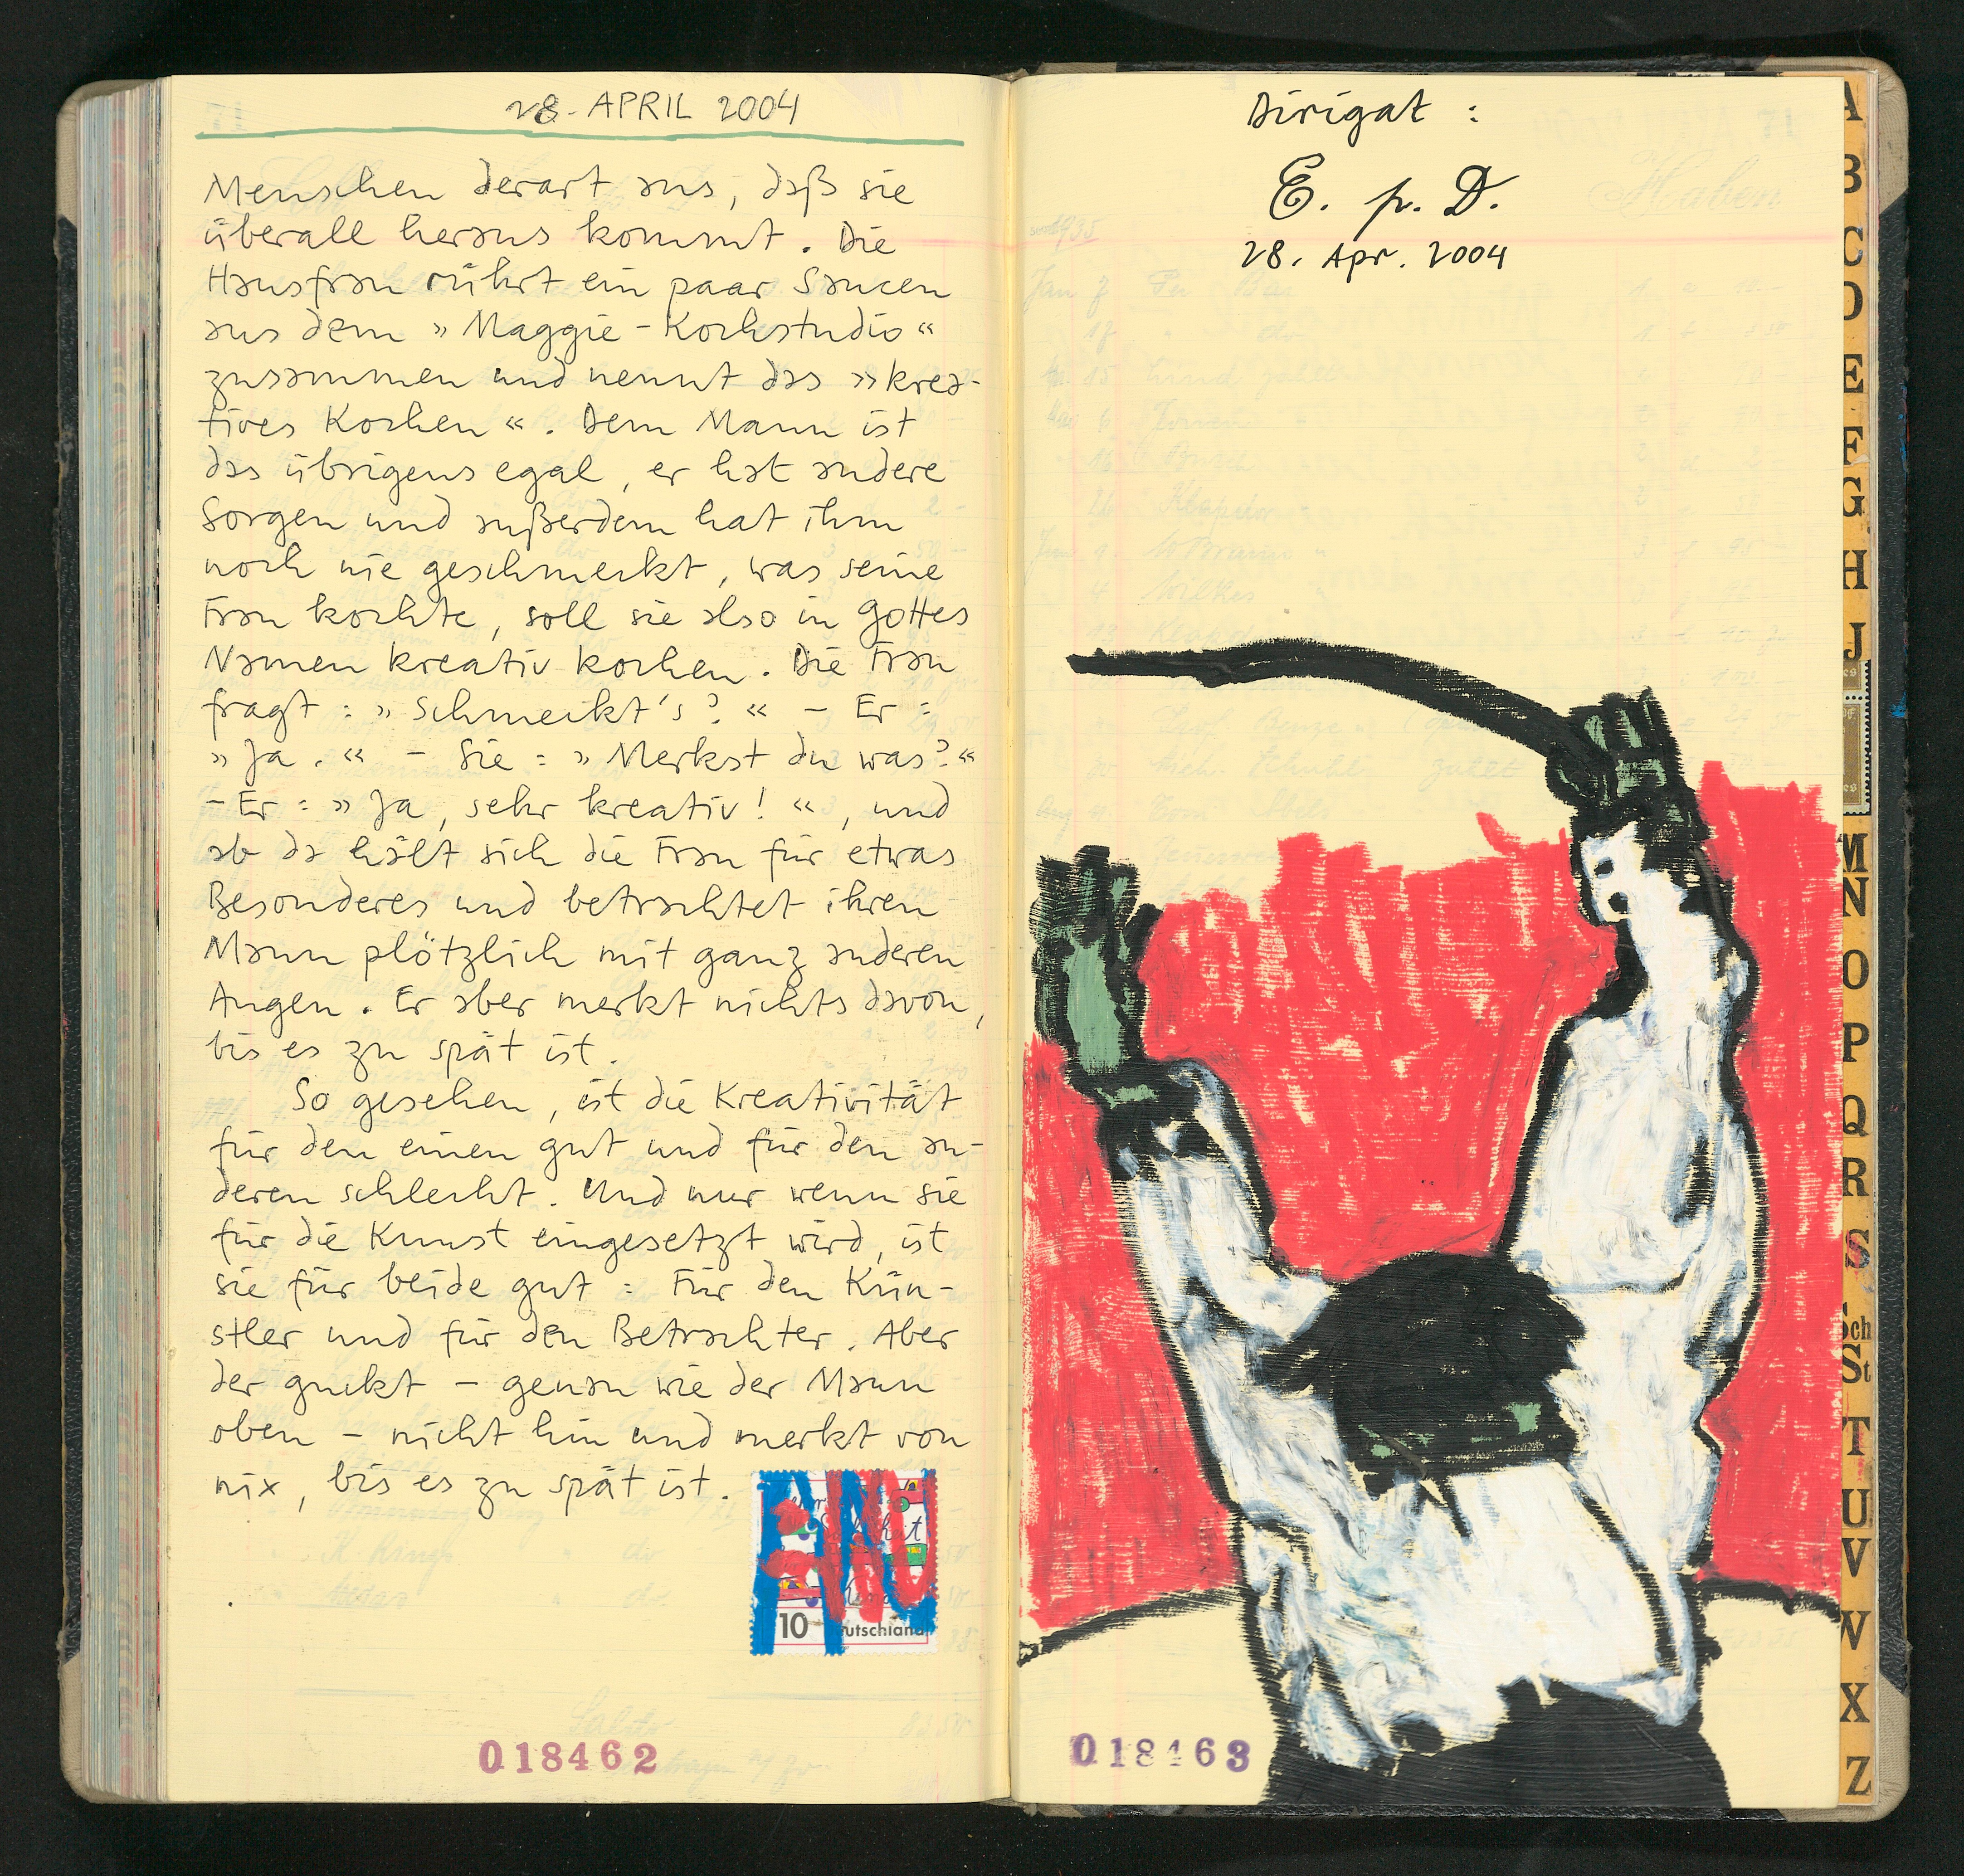 28. APRIL 2004
Menschen derart aus, daß sie
überall heraus kommt. Die
Hausfrau rührt ein paar Saucen
aus dem »Maggie-Kochstudio«
zusammen und nennt das »krea-
tives Kochen«. Dem Mann ist
das übrigens egal, er hat andere
Sorgen und außerdem hat ihm
noch nie geschmeckt, was seine
Frau kochte, soll sie also in Gottes
Namen kreativ kochen. Die Frau
fragt: »Schmeckt's?« – Er:
»Ja.« – Sie: »Merkst du was?«
– Er: »Ja, sehr kreativ!«, und
ab da hält sich die Frau für etwas
Besonderes und betrachtet ihren
Mann plötzlich mit ganz anderen
Augen. Er aber merkt nichts davon,
bis es zu spät ist.
So gesehen, ist die Kreativität
für den einen gut und für den an-
deren schlecht. Und nur wenn sie
für die Kunst eingesetzt wird, ist
sie für beide gut: Für den Kün-
stler und für den Betrachter. Aber
der guckt – genau wie der Mann
oben – nicht hin und merkt von
nix, bis es zu spät ist.
10
018462
Dirigat:
E. p. D.
28. Apr. 2004
Haben
1935
018463
A
B
C
D
E
F
G
H
J
M
N
O
P
Q
R
S
Sch
St
T
U
V
W
X
Z